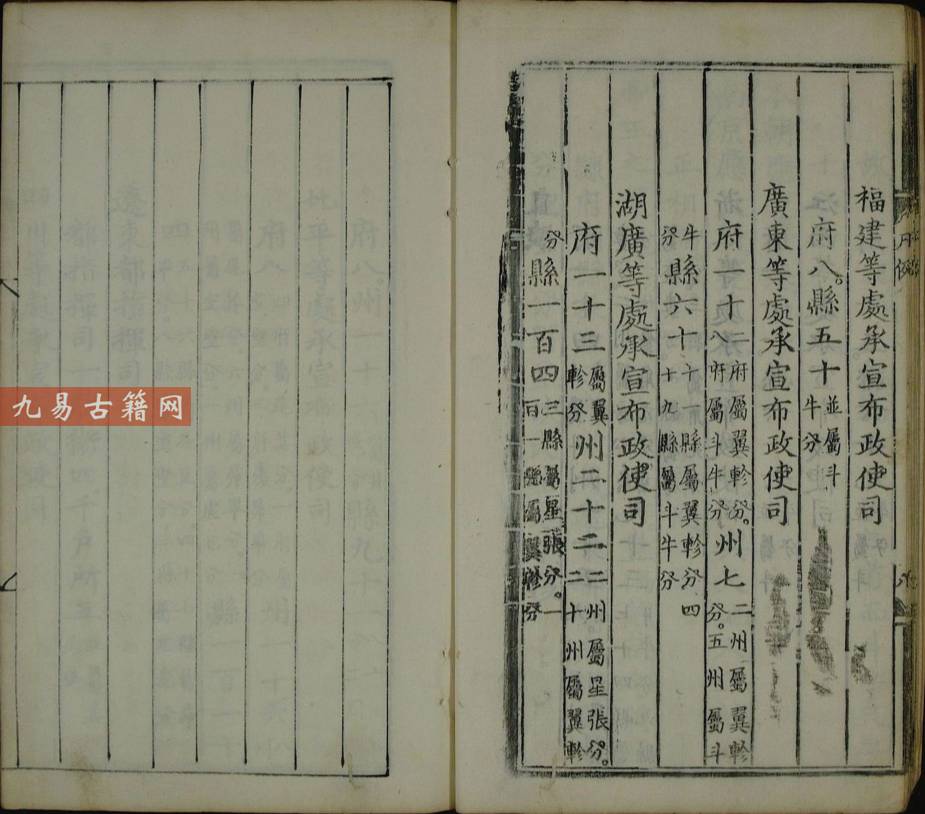 福建等處承宣布政使司
府八。縣五十並屬斗牛分
廣東等處承宣布政使司
府一十二府屬翼軫分。八府屬斗牛分州七二州屬翼軫分。五州屬斗
牛分縣六十十一縣屬翼軫分四十九縣屬斗牛分
湖廣等處承宣布政使司
府一十三屬翼軫分州二十二二州屬星張分。二十州屬翼軫
分縣一百四三縣屬星張分。一百一縣屬翼軫分
九易古籍网